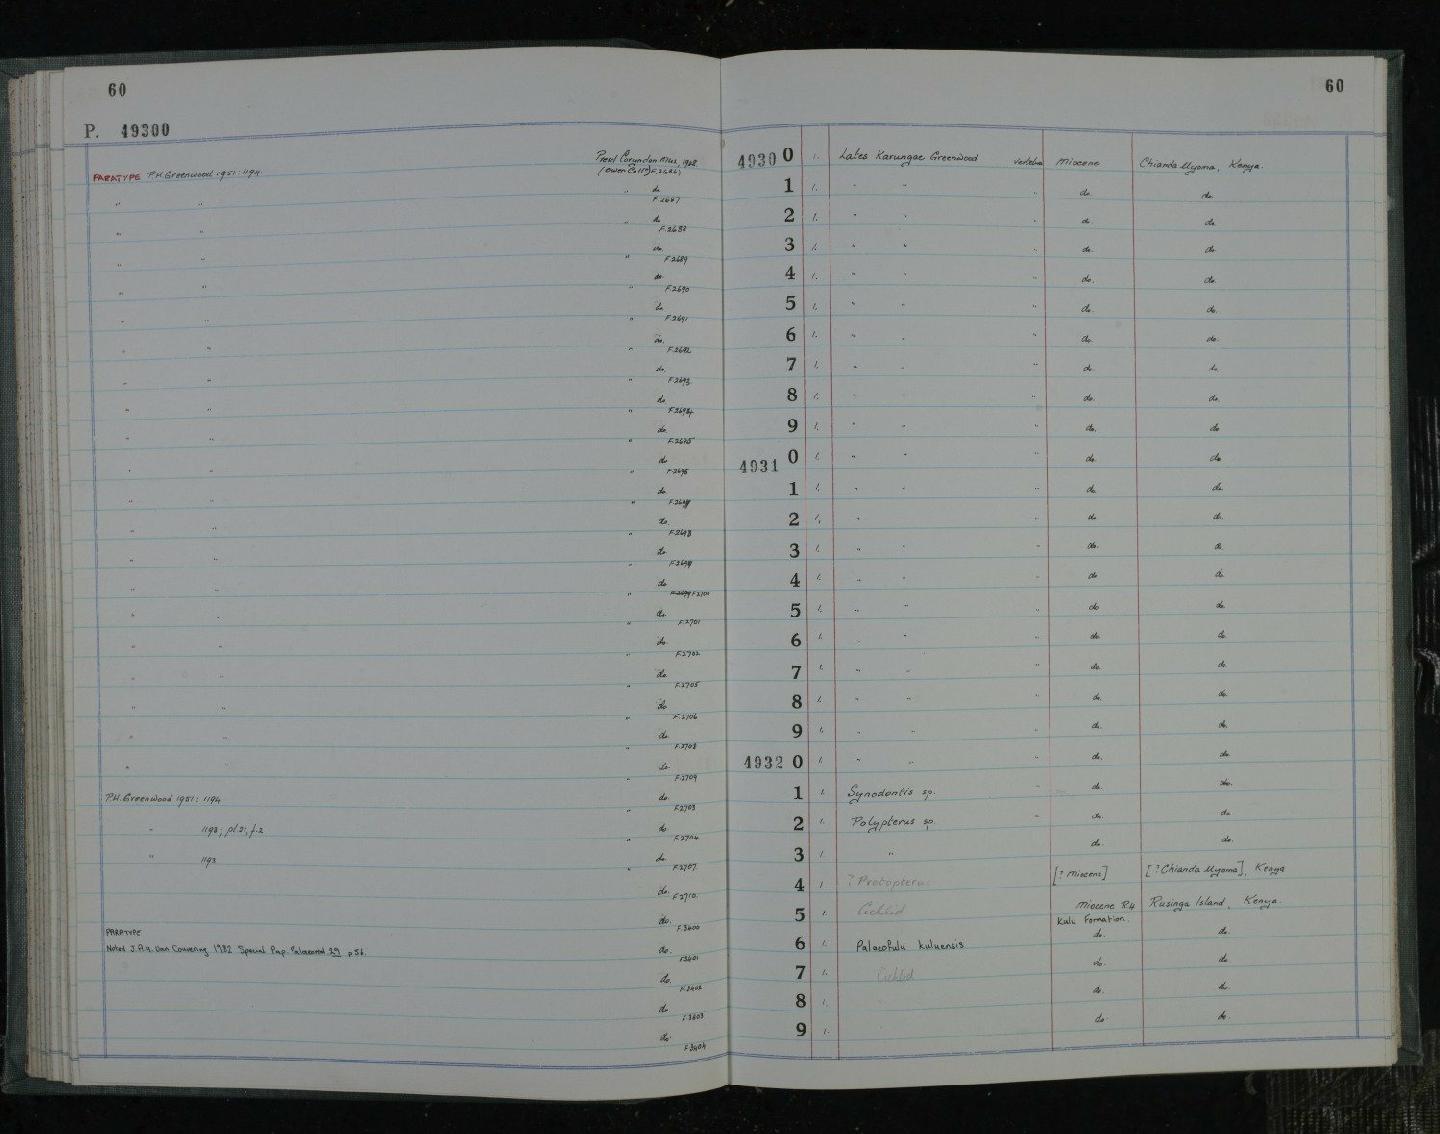 60
P. 49300
PARATYPE P.H. Greenwood 1951: 1194. Pres'd Coryndon Mus., 1962
" " " do. F.2687
" " " do. F.2688
" " " do. F.2689
" " " do. F.2690
" " " do. F.2691
" " " do. F.2692
" " " do. F.2693
" " " do. F.2694
" " " do. F.2695
" " " do. F.2696
" " " do.
" " " do. F.2698
" " " do. F.2699
" " " do.
" " " do. F.2701
" " " do. F.2702
" " " do. F.2705
" " " do. F.2706
" " " do. F.2708
" " " do. F.2709
P.H. Greenwood 1951: 1194 " do. F.2703
" 1193; pl.2; f.2 " do. F.2704
" 1193 " do. F.2707
do. F.2710.
do. F.3400
PARATYPE
Noted J.A.H. Van Couvering 1982 Special Pap. Palaeontol 29 p56. do. F3401
do. F.3402
do. F.3403
do. F.3404
60
4930 0 1. Lates Karungae Greenwood vertebra Miocene Chianda Uyoma, Kenya.
1 1. " " " do. do.
2 1. " " " do. do.
3 1. " " " do. do.
4 1. " " " do. do.
5 1. " " " do. do.
6 1. " " " do. do.
7 1. " " " do. do.
8 1. " " " do. do.
9 1. " " " do. do.
4931 0 1. " " " do. do.
1 1. " " " do. do.
2 1. " " do. do.
3 1. " " " do. do.
4 1. " " " do. do.
5 1. " " " do. do.
6 1. " " " do. do.
7 1. " " " do. do.
8 1. " " " do. do.
9 1. " " " do. do.
4932 0 1. " " " do. do.
1 1. Synodontis sp. " do. do.
2 1. Polypterus sp. do. do.
3 1. " do. do.
4 1 ? Protopterus [? Miocene] [? Chianda Uyoma], Kenya
5 1. Cichlid Miocene R4 Kulu Formation. Rusinga Island, Kenya.
6 1. Palaeofulu kuluensis do. do.
7 1. Cichlid do. do.
8 1. do. do.
9 1. do. do.